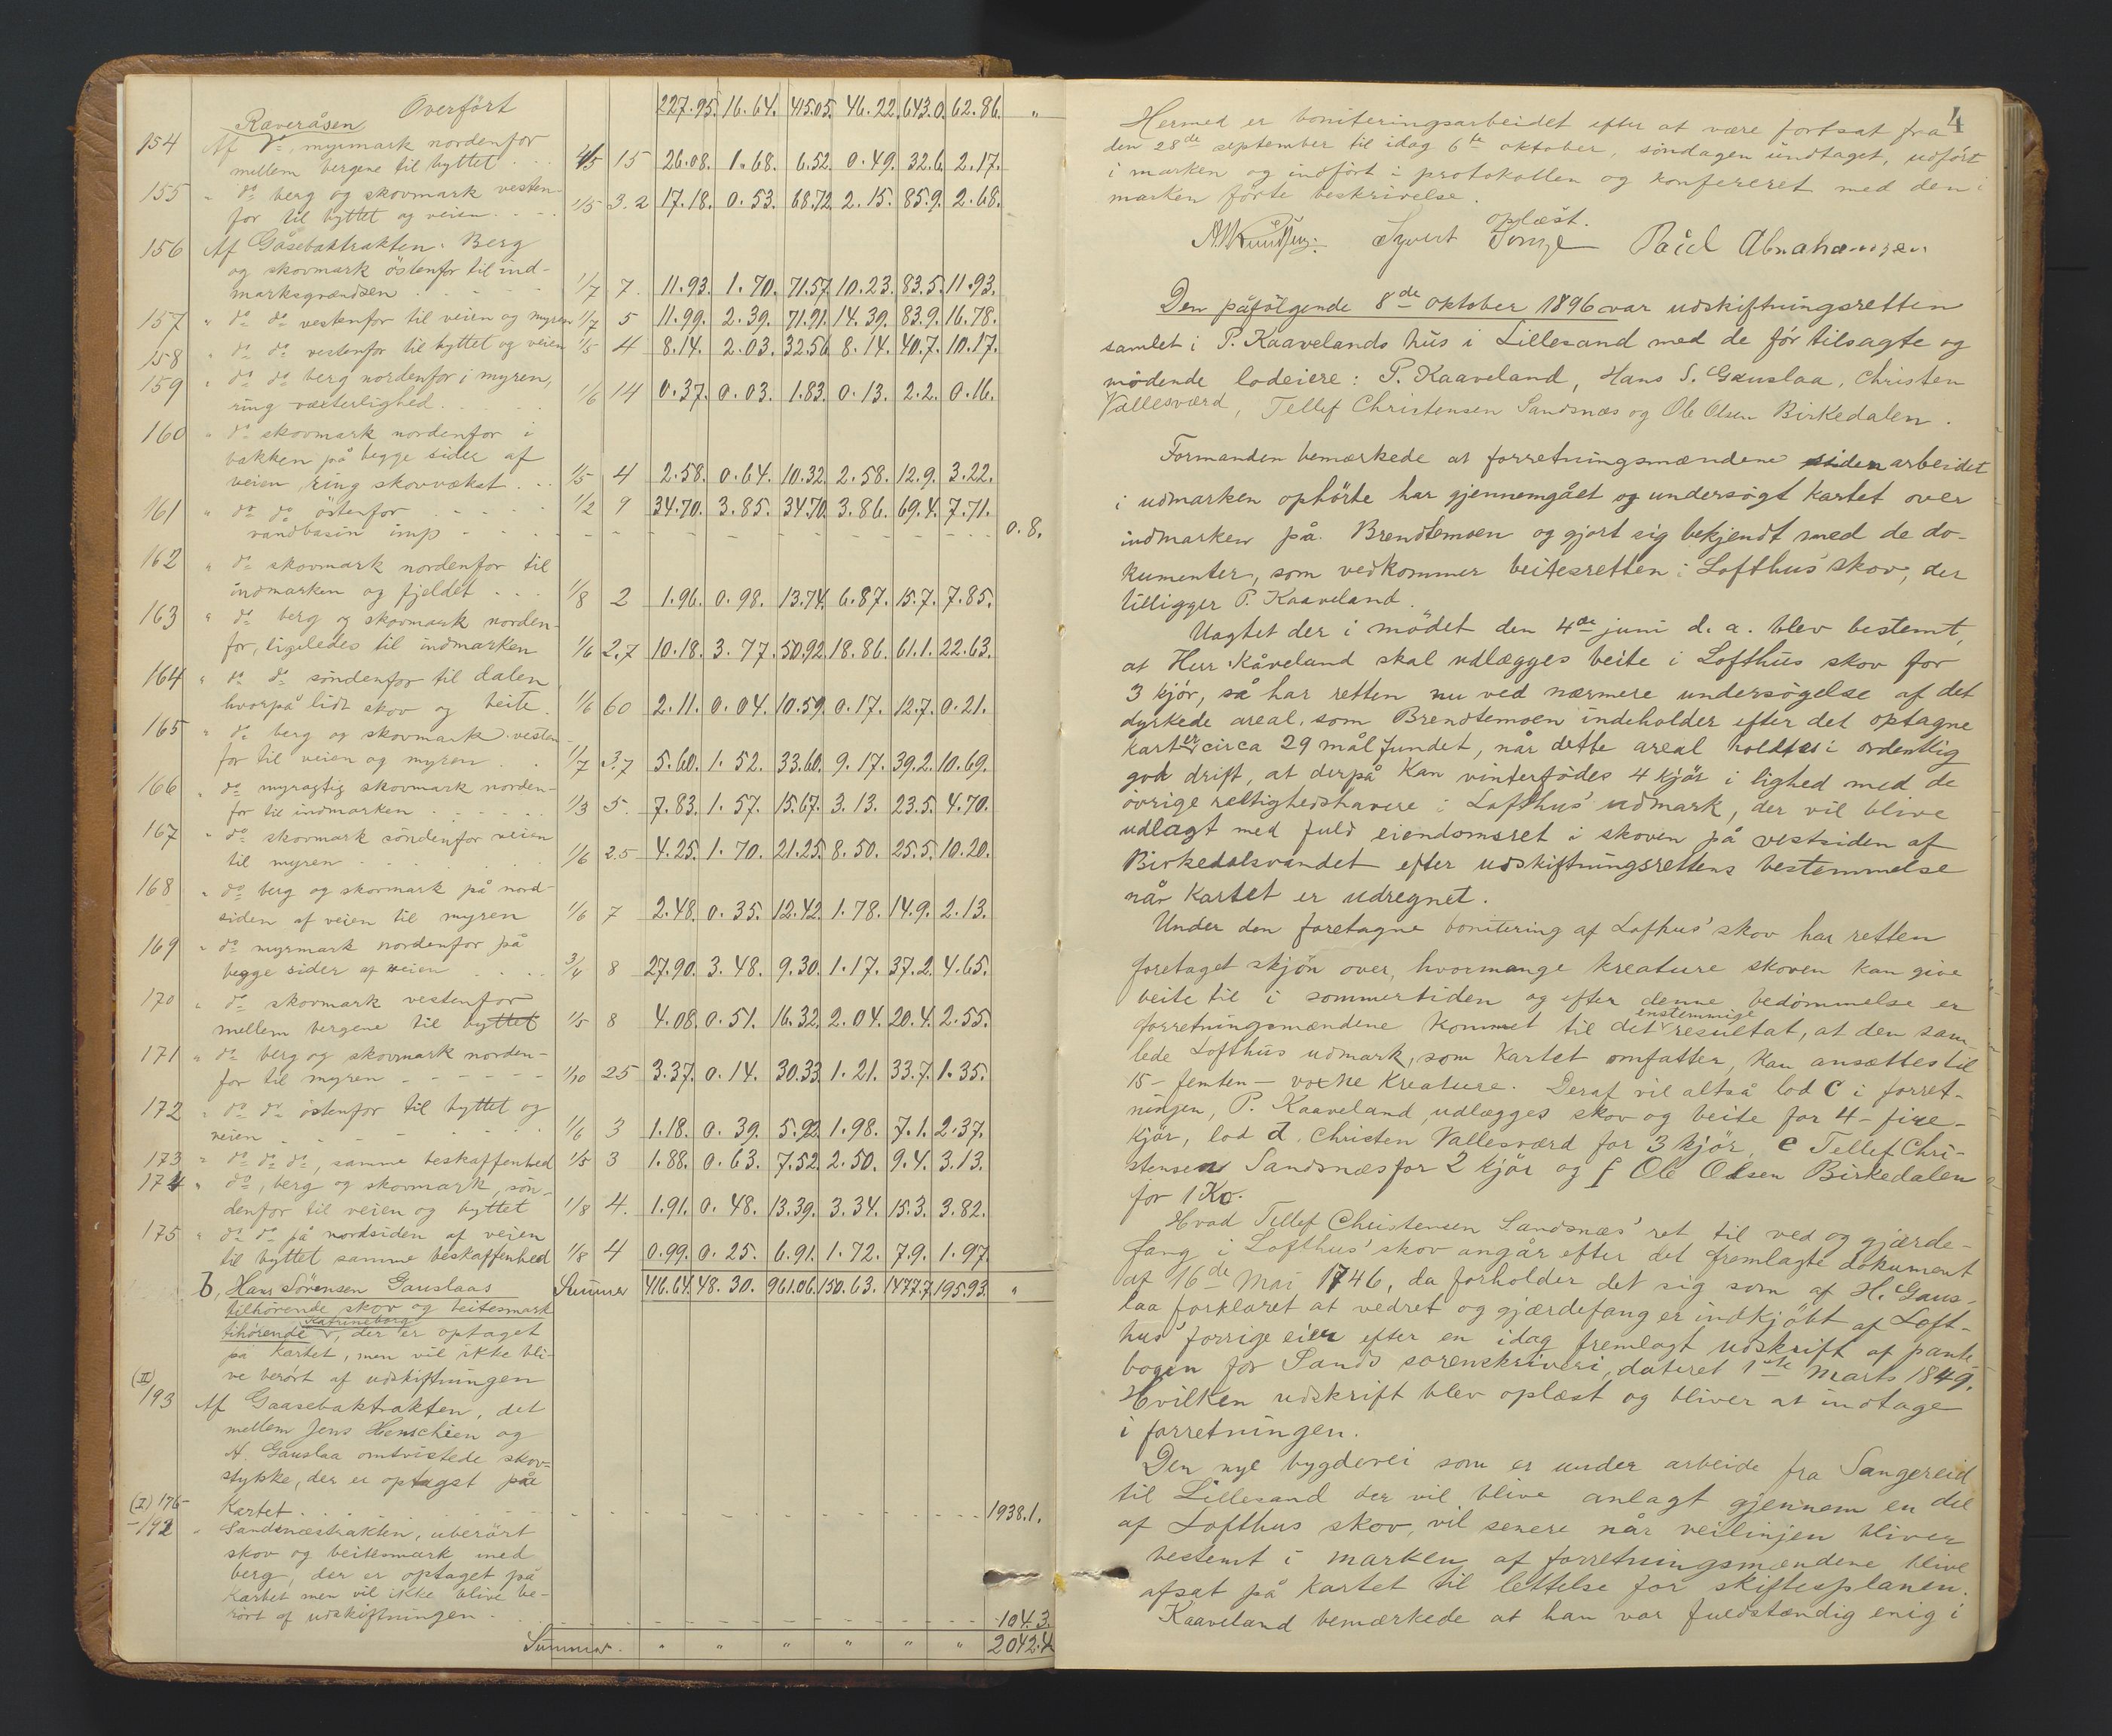 Overført 227.95. 16.64. 415.05. 46.22. 643.0. 62.86. "
Ræveråsen
154 Af do, myrmark nordenfor
mellem bergene til byttet . . . 4/5 15 26.08. 1.68. 6.52. 0.49. 32.6. 2.17.
155 " do berg og skovmark vesten-
for til byttet og veien . . . 1/5 3.2 17.18. 0.53. 68.72. 2.15. 85.9. 2.68.
156 Af Gåsebaktrakten. Berg
og skovmark östenfor til ind-
marksgrændsen . . . . . 1/7 7. 11.93. 1.70. 71.57. 10.23. 83.5. 11.93.
157 " do do vestenfor til veien og myren 1/7 5 11.99. 2.39. 71.91. 14.39. 83.9. 16.78.
158 " do do vestenfor til byttet og veien 1/5 4 8.14. 2.03. 32.56. 8.14. 40.7. 10.17.
159 " do do berg nordenfor i myren,
ring væxterlighed . . . . . 1/6 14 0.37. 0.03. 1.83. 0.13. 2.2. 0.16.
160 " do skovmark nordenfor i
bakken på begge sider af
veien, ring skovvækst . . . 1/5 4 2.58. 0.64. 10.32. 2.58. 12.9. 3.22.
161 " do do östenfor . . . . . 1/2 9 34.70. 3.85. 34.70. 3.86. 69.4. 7.71.
vandbasin imp - - - - - - - - - - 0.8.
162 " do skovmark nordenfor til
indmarken og fjeldet . . . 1/8 2 1.96. 0.98. 13.74. 6.87. 15.7. 7.85.
163 " do berg og skovmark norden-
for, ligeledes til indmarken 1/6 2.7 10.18. 3.77. 50.92. 18.86. 61.1. 22.63.
164 " do do söndenfor til dalen
hvorpå lidt skov og beite . 1/6 60 2.11. 0.04. 10.59. 0.17. 12.7. 0.21.
165 " do berg og skovmark vesten-
for til veien og myren . . 1/7 3.7 5.60. 1.52. 33.60. 9.17. 39.2. 10.69.
166 " do myragtig skovmark norden-
for til indmarken . . . . . 1/3 5. 7.83. 1.57. 15.67. 3.13. 23.5. 4.70.
167 " do skovmark söndenfor veien
til myren . . . . . 1/6 2.5 4.25. 1.70. 21.25. 8.50. 25.5. 10.20.
168 " do berg og skovmark på nord-
siden af veien til myren 1/6 7 2.48. 0.35. 12.42. 1.78. 14.9. 2.13.
169 " do myrmark nordenfor på
begge sider af veien . . . . 3/4 8 27.90. 3.48. 9.30. 1.17. 37.2. 4.65.
170 " do skovmark vestenfor
mellem bergene til byttet 1/5 8 4.08. 0.51. 16.32. 2.04. 20.4. 2.55.
171 " do berg og skovmark norden-
for til myren - - - - - - 1/10 25 3.37. 0.14. 30.33. 1.21. 33.7. 1.35.
172 " do do östenfor til byttet og
veien . . . . . . 1/6 3 1.18. 0.39. 5.92. 1.98. 7.1. 2.37.
173 " do do do, samme beskaffenhed 1/5 3 1.88. 0.63. 7.52. 2.50. 9.4. 3.13.
174 " do, berg og skovmark, sön-
denfor til veien og byttet 1/8 4. 1.91. 0.48. 13.39. 3.34. 15.3. 3.82.
175 " do do på nordsiden af veien
til byttet samme beskaffenhed 1/8 4 0.99. 0.25. 6.91. 1.72. 7.9. 1.97.
b, Hans Sörensen Gauslaas Summer 416.64. 48.30. 961.06. 150.63. 1477.7. 195.93. "
tilhörende skov og beitesmark
Katrineborg
tihørende, der er optaget
på kartet, men vil ikke bli-
ve berört af udskiftningen
(II) 193 Af Gaasebaktrakten, det
mellem Jens Henschien og
H. Gauslaa omtvistede skov-
stykke, der er optaget på
Kartet . . . . . . . . . 1938.1.
(I) 176-192 " Sandsnæstrakten, uberørt
skov og beitesmark med
berg, der er optaget på
Kartet men vil ikke blive be-
rört af udskiftningen . . . . . . . 104.3.
Summer. " " " " " " 2042.4
4
Hermed er boniteringsarbeidet efter at være fortsat fra
den 28de september til idag 6te oktober, söndagen undtaget, udfört
i marken og indfört i protokollen og konfereret med den i
marken førte beskrivelse.
oplæst.
Syvert Paul Abrahamsen
Den påfölgende 8de oktober 1896 var udskiftningsretten
samlet i P. Kaavelands hus i Lillesand med de för tilsagte og
mödende lodeiere: P. Kaaveland, Hans S. Gauslaa, Christen
Vallesværd, Tellef Christensen Sandsnæs og Ole Olsen Birkedalen.
Formanden bemærkede at forretningsmændene siden arbeidet
i udmarken ophörte har gjennemgået og undersögt kartet over
indmarken på Brendtemoen og gjort sig bekjendt med de do-
kumenter, som vedkommer beitesretten i Lofthus' skov, der
tilligger P. Kaaveland.
Uagtet der i mödet den 4de juni d. a. blev bestemt,
at Herr Kåveland skal udlægges beite i Lofthus skov for
3 kjör, så har retten nu ved nærmere undersögelse af det
dyrkede areal, som Brendtemoen indeholder efter det optagne
kart er circa 29 mål fundet, når dette areal holdes i ordentlig
god drift, at derpå Kan vinterfödes 4 kjör i lighed med de
övrige rettighedshavere i Lofthus' udmark, der vil blive
udlagt med fuld eiendomsret i skoven på vestsiden af
Birkedalsvandet efter udskiftningsrettens bestemmelse
når Kartet er udregnet.
Under den foretagne bonitering af Lofhus' skov har retten
foretaget skjön over, hvormange kreature skoven kan give
beite til i sommertiden og efter denne bedömmelse er
enstemmige
forretningsmændene kommet til det resultat, at den sam-
lede Lofthus udmark, som Kartet omfatter, kan ansættes til
15 - femten - voxne Kreature. Deraf vil altså lod C i forret-
ningen, P. Kaaveland, udlægges skov og beite for 4 - fire -
kjör, lod d. Christen Vallesværd for 3 kjör, e Tellef Chri-
stensen Sandsnæs for 2 kjör og f Ole Olsen Birkedalen
for 1 Ko.
Hvad Tellef Christensen Sandsnæs' ret til ved og gjærde-
fang i Lofthus' skov angår efter det fremlagte dokument
af 16de Mai 1746, da forholder det sig som af H. Gaus-
laa forklaret at vedret og gjærdefang er indkjöbt af Loft-
hus' forrige eier efter en idag fremlagt udskrift af pante
bogen for Sands sorenskriveri, dateret 1ste Marts 1849.
Hvilken udskrift blev oplæst og bliver at indtage
i forretningen.
Den nye bygdevei som er under arbeide fra Sangereid
til Lillesand der vil blive anlagt gjennem en del
af Lofthus skov, vil senere når veilinjen bliver
bestemt i marken af forretningsmændene blive
afsat på kartet til lettelse for skiftesplanen.
Kaaveland bemærkede at han var fuldstændig enig i